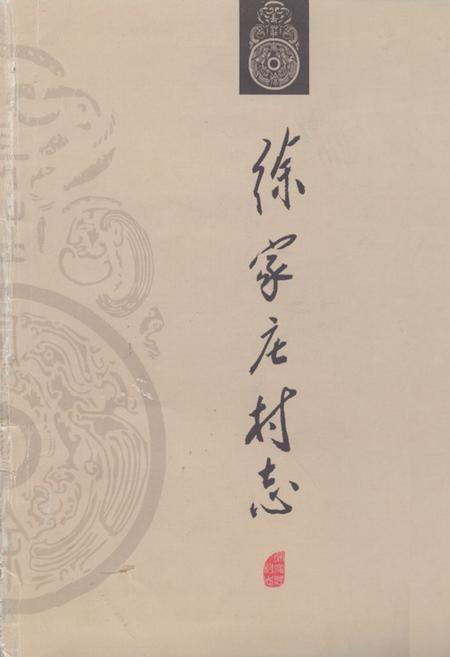 徐家庄村志